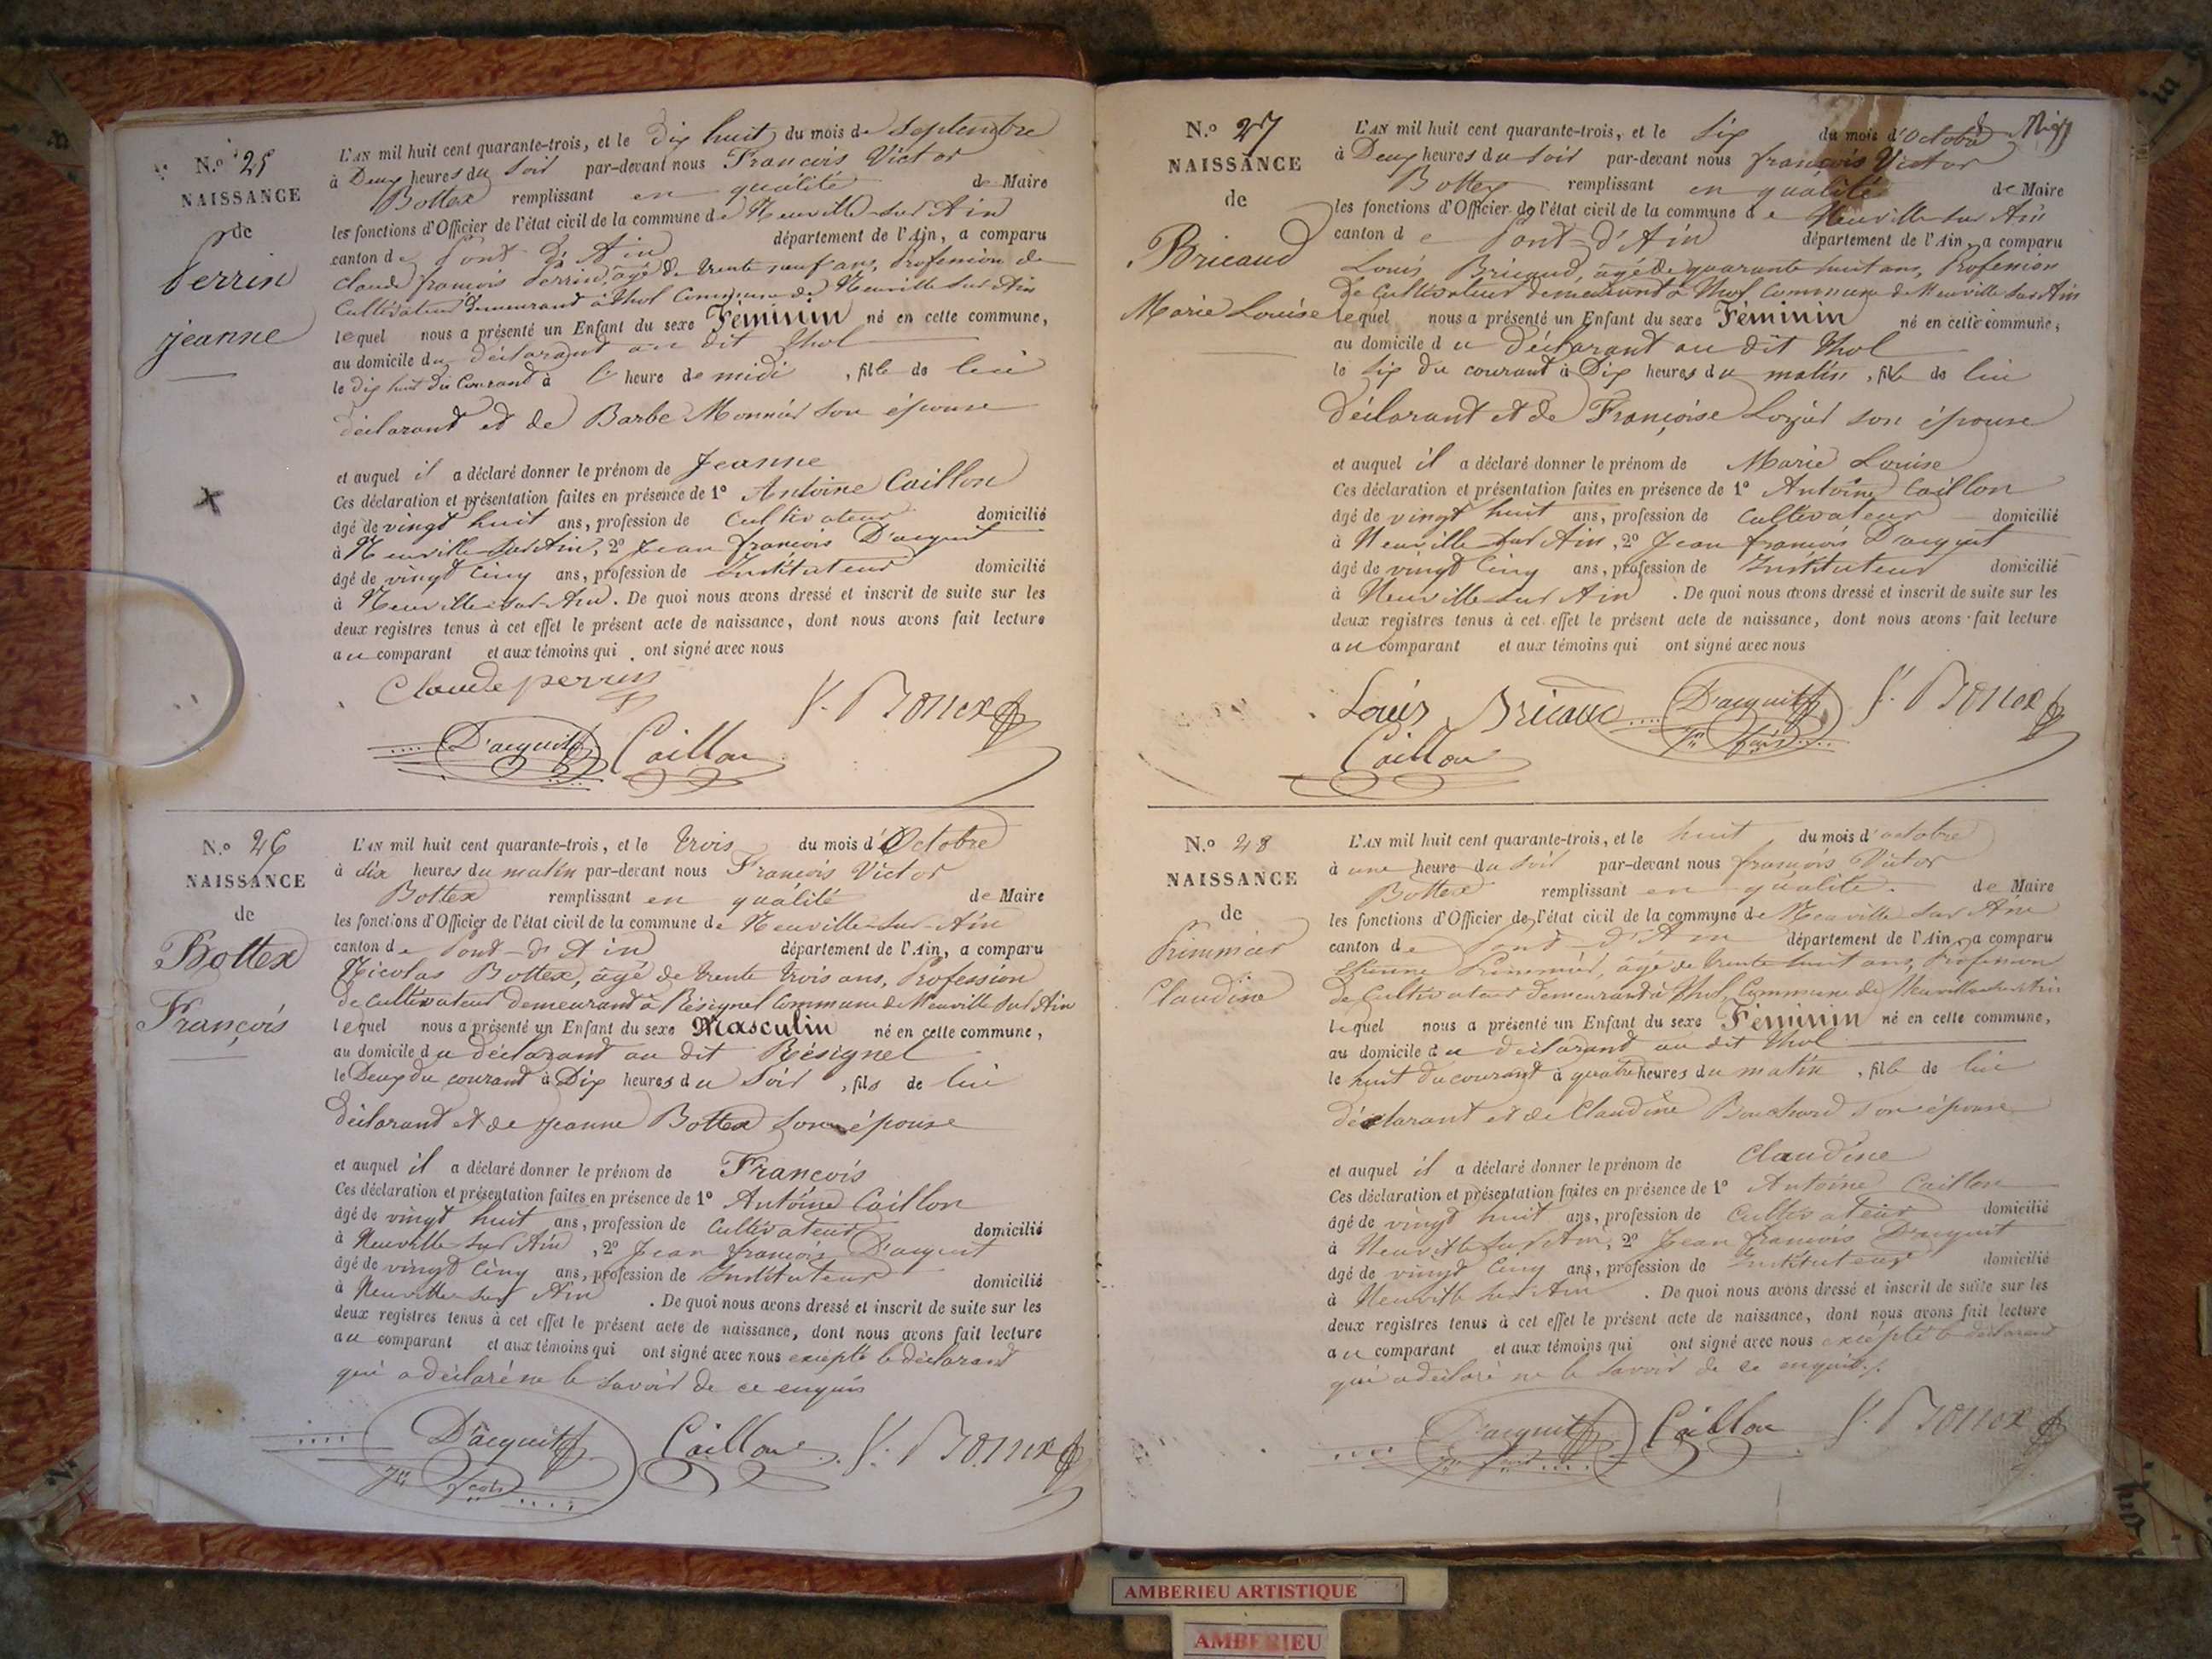 N.o 25
NAISSANCE
de
Perrin
jeanne
L'AN mil huit cent quarante-trois, et le dix huit du mois de Septembre
à Deux heures du soir par-devant nous François Victor
Bottex remplissant en qualité de Maire
les fonctions d'Officier de l'état civil de la commune de Neuville-sur Ain
canton de Pont d'Ain département de l'Ain, a comparu
Claude françois Perrin, âgé de trente neuf ans, Profession de
Cultivateur demeurant à Thol Commune de Neuville sur Ain
lequel nous a présenté un Enfant du sexe Féminin né en cette commune,
au domicile du déclarant au dit Thol
le dix huit du Courant à l' heure de midi, fille de lui
déclarant et de Barbe Monnier son épouse
et auquel il a déclaré donner le prénom de Jeanne
Ces déclaration et présentation faites en présence de 1o Antoine Caillon
âgé de vingt huit ans, profession de Cultivateur domicilié
à Neuville sur Ain, 2o Jean françois D'acquit
âgé de vingt cinq ans, profession de Instituteur domicilié
à Neuville-sur-Ain. De quoi nous avons dressé et inscrit de suite sur les
deux registres tenus à cet effet le présent acte de naissance, dont nous avons fait lecture
au comparant et aux témoins qui ont signé avec nous
Claude perrin
V. Bottex
D'acquit Caillon
N.o 26
NAISSANCE
de
Bottex
François
L'AN mil huit cent quarante-trois, et le trois du mois d'Octobre
à dix heures du matin par-devant nous François Victor
Bottex remplissant en qualité de Maire
les fonctions d'Officier de l'état civil de la commune de Neuville-sur-Ain
canton de Pont-d'Ain département de l'Ain, a comparu
Nicolas Bottex, âgé de trente trois ans, Profession
de Cultivateur demeurant à Résignel Commune de Neuville sur Ain
lequel nous a présenté un Enfant du sexe Masculin né en cette commune,
au domicile du déclarant au dit Résignel
le Deux du courant à Dix heures du Soir, fils de lui
déclarant et de jeanne Bottex son épouse
et auquel il a déclaré donner le prénom de François
Ces déclaration et présentation faites en présence de 1o Antoine Caillon
âgé de vingt huit ans, profession de Cultivateur domicilié
à Neuville-sur Ain, 2o Jean françois D'acquit
âgé de vingt cinq ans, profession de Instituteur domicilié
à Neuville sur Ain. De quoi nous avons dressé et inscrit de suite sur les
deux registres tenus à cet effet le présent acte de naissance, dont nous avons fait lecture
au comparant et aux témoins qui ont signé avec nous excepté le déclarant
qui a déclaré ne le savoir de ce enquis
D'acquit Caillon V. Bottex
Jn fçois
N.o 27
NAISSANCE
de
Bricaud
Marie Louise
L'AN mil huit cent quarante-trois, et le Six du mois d'Octobre
à Deux heures du soir par-devant nous françois Victor
Bottex remplissant en qualité de Maire
les fonctions d'Officier de l'état civil de la commune de Neuville sur Ain
canton de Pont-d'Ain département de l'Ain, a comparu
Louis Bricaud, âgé de quarante huit ans, Profession
de Cultivateur demeurant à Thol Commune de Neuville sur Ain
lequel nous a présenté un Enfant du sexe Féminin né en cette commune,
au domicile du déclarant au dit Thol
le Six du courant à Dix heures du matin, fille de lui
déclarant et de Françoise Lozier son épouse
et auquel il a déclaré donner le prénom de Marie Louise
Ces déclaration et présentation faites en présence de 1o Antoine Caillon
âgé de vingt huit ans, profession de Cultivateur domicilié
à Neuville sur Ain, 2o Jean françois D'acquit
âgé de vingt cinq ans, profession de Instituteur domicilié
à Neuville sur Ain. De quoi nous avons dressé et inscrit de suite sur les
deux registres tenus à cet effet le présent acte de naissance, dont nous avons fait lecture
au comparant et aux témoins qui ont signé avec nous
Louis Bricaud D'acquit V. Bottex
Jn fçois
Caillon
N.o 28
NAISSANCE
de
Primmier
Claudine
L'AN mil huit cent quarante-trois, et le huit du mois d'octobre
à une heure du soir par-devant nous françois Victor
Bottex remplissant en qualité. de Maire
les fonctions d'Officier de l'état civil de la commune de Neuville sur Ain
canton de Pont-d'Ain département de l'Ain, a comparu
Etienne Primmier, âgé de trente huit ans, Profession
de Cultivateur demeurant à Thol Commune de Neuville sur Ain
lequel nous a présenté un Enfant du sexe Féminin né en cette commune,
au domicile du déclarant au dit Thol
le huit du courant à quatre heures du matin, fille de lui
déclarant et de Claudine Bouchard son épouse
et auquel il a déclaré donner le prénom de Claudine
Ces déclaration et présentation faites en présence de 1o Antoine Caillon
âgé de vingt huit ans, profession de Cultivateur domicilié
à Neuville sur Ain, 2o Jean françois D'acquit
âgé de vingt cinq ans, profession de Instituteur domicilié
à Neuville sur Ain. De quoi nous avons dressé et inscrit de suite sur les
deux registres tenus à cet effet le présent acte de naissance, dont nous avons fait lecture
au comparant et aux témoins qui ont signé avec nous excepté le déclarant
qui a déclaré ne le savoir de ce enquis.
D'acquit Caillon V. Bottex
AMBERIEU ARTISTIQUE
AMBERIEU